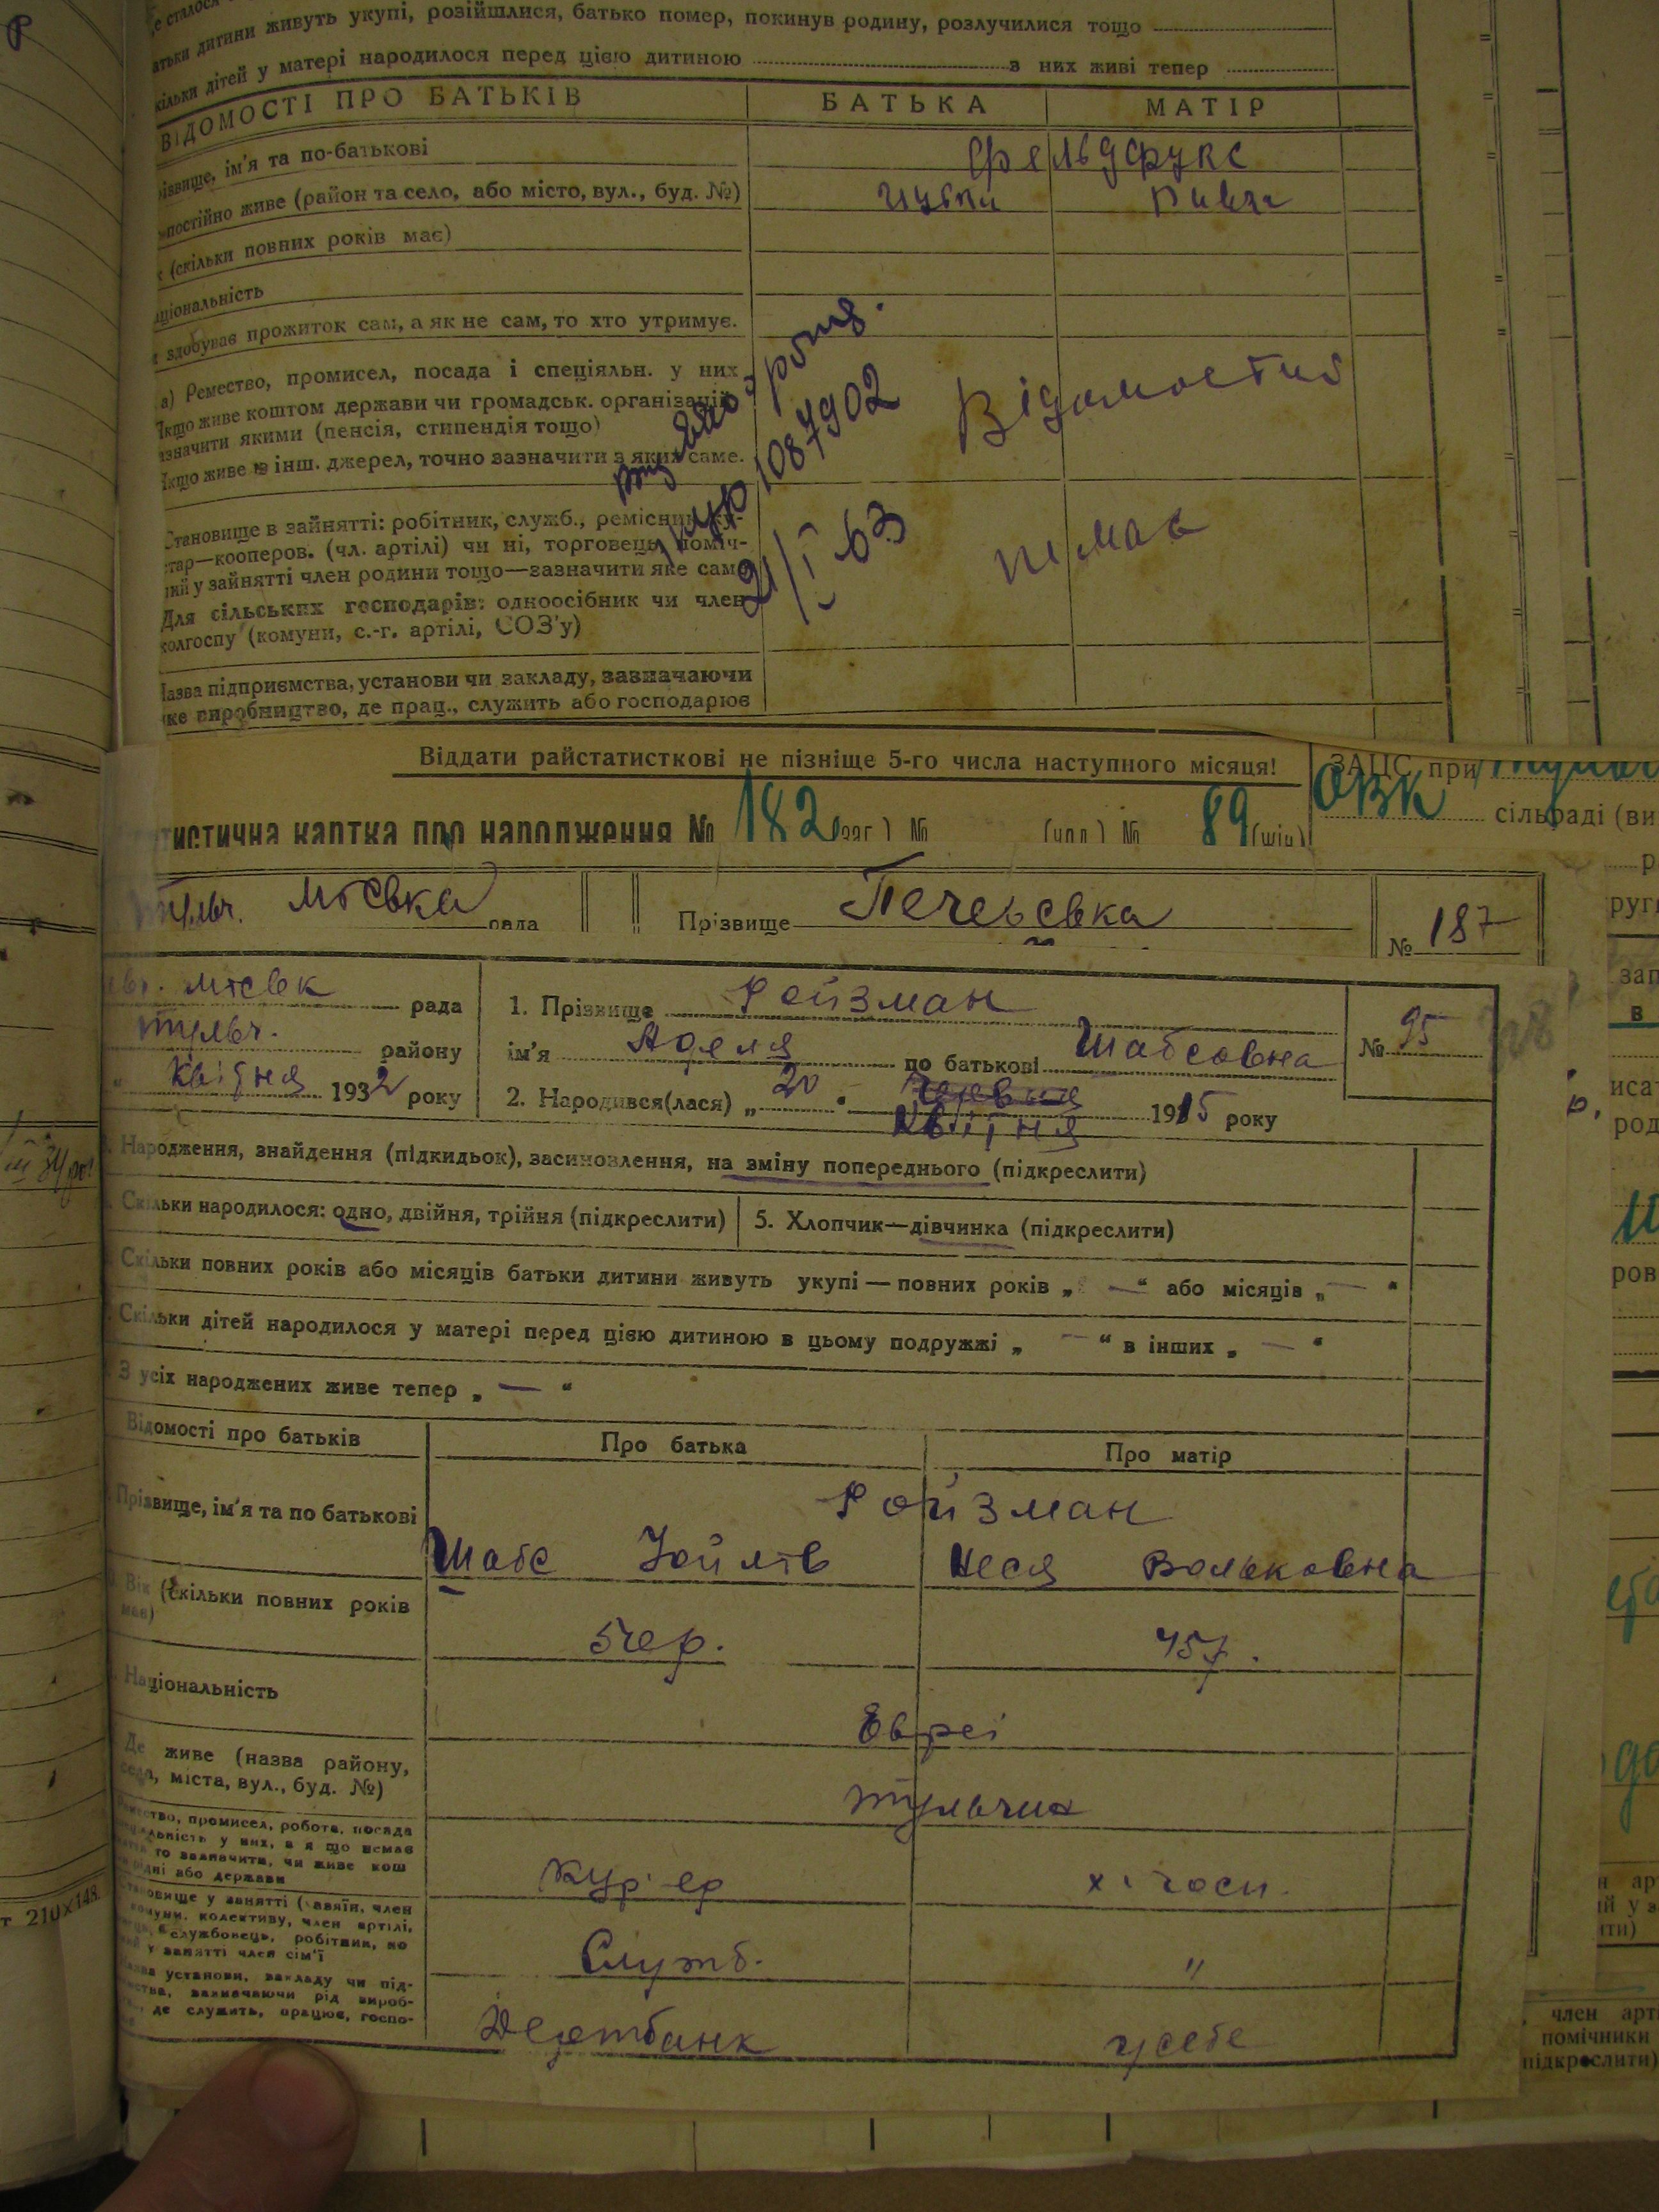 атьки дитини живуть укупі, розійшлися, батько помер, покинув родину, розлучилися тощо
кільки дітей у матері народилося перед цією дитиною з них живі тепер
ВІДОМОСТІ ПРО БАТЬКІВ БАТЬКА МАТІР
різвище, ім'я та по-батькові Фельдфукс
постійно живе (район та село, або місто, вул., буд. №)
к (скільки повних років має)
аціональність
здобував прожиток сам, а як не сам, то хто утримує.
а) Ремество, промисел, посада і спеціяльн. у них
Якщо живе коштом держави чи громадськ. організацій
азначити якими (пенсія, стипендія тощо)
Якщо живе з інш. джерел, точно зазначити з яких саме.
Відомостий
немає
1087902
21/I-63
Становище в зайнятті: робітник, служб., ремісник, ку-
стар—кооперов. (чл. артілі) чи ні, торговець, поміч-
ний у зайнятті член родини тощо—зазначити яке саме
Для сільських господарів: одноосібник чи член
колгоспу (комуни, с.-г. артілі, СОЗ'у)
Назва підприємства, установи чи закладу, зазначаючи
яке виробництво, де прац., служить або господарює
Віддати райстатисткові не пізніще 5-го числа наступного місяця!
ЗАЦС при
ОВК сільраді (ви
истична картка про народження № 182 (заг.) № (чол.) № 89 (жін)
тульч. міська рада Прізвище № 187
міськ рада 1. Прізвище Ройзман
тульч. району ім'я Аделя по батькові Шабсовна № 95
квітня 1932 року 2. Народився(лася) „ 20 “ червня квітня 1915 року
Народження, знайдення (підкидьок), засиновлення, на зміну попереднього (підкреслити)
Скільки народилося: одно, двійня, трійня (підкреслити) 5. Хлопчик—дівчинка (підкреслити)
Скільки повних років або місяців батьки дитини живуть укупі — повних років „ — “ або місяців „ — “
Скільки дітей народилося у матері перед цією дитиною в цьому подружжі „ — “ в інших „ — “
З усіх народжених живе тепер „ — “
Відомості про батьків Про батька Про матір
Прізвище, ім'я та по батькові Ройзман
Шабс Неся Вольковна
Вік (скільки повних років
має) 457.
Національність Евреі
Де живе (назва району,
села, міста, вул., буд. №) тульчин
Ремество, промисел, робота, посада
спеціальність у них, а я що немає
то зазначити, чи живе кош
рідні або держави
кур'ер х. госп.
Становище у занятті (хазяїн, член
комуни, колективу, член артілі,
службовець, робітник, по
у занятті член сім'ї
Служб. "
Назва установи, закладу чи під-
ства, зазначаючи рід вироб-
де служить, працює, госпо-
Держбанк у себе
т 210×148.
член арт
помічники
підкреслити)